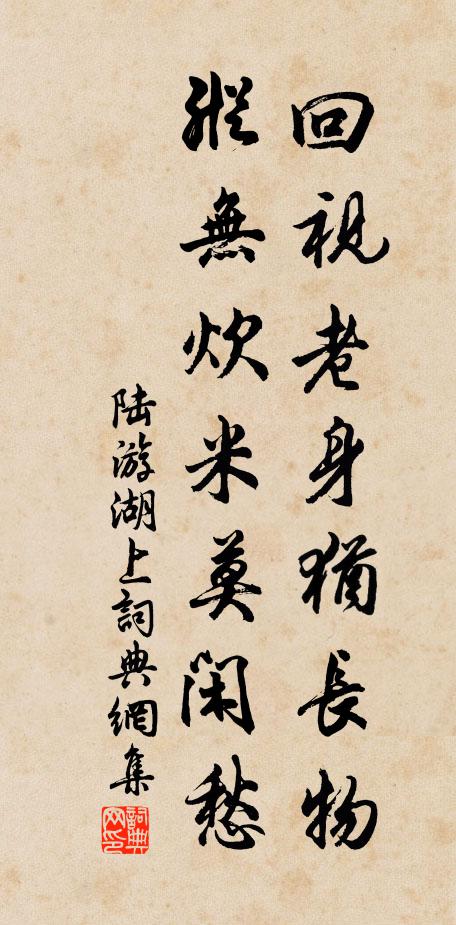 回視老身猶長物
縱無炊米莫閑愁
陆游湖上詞典網集
詞典网印